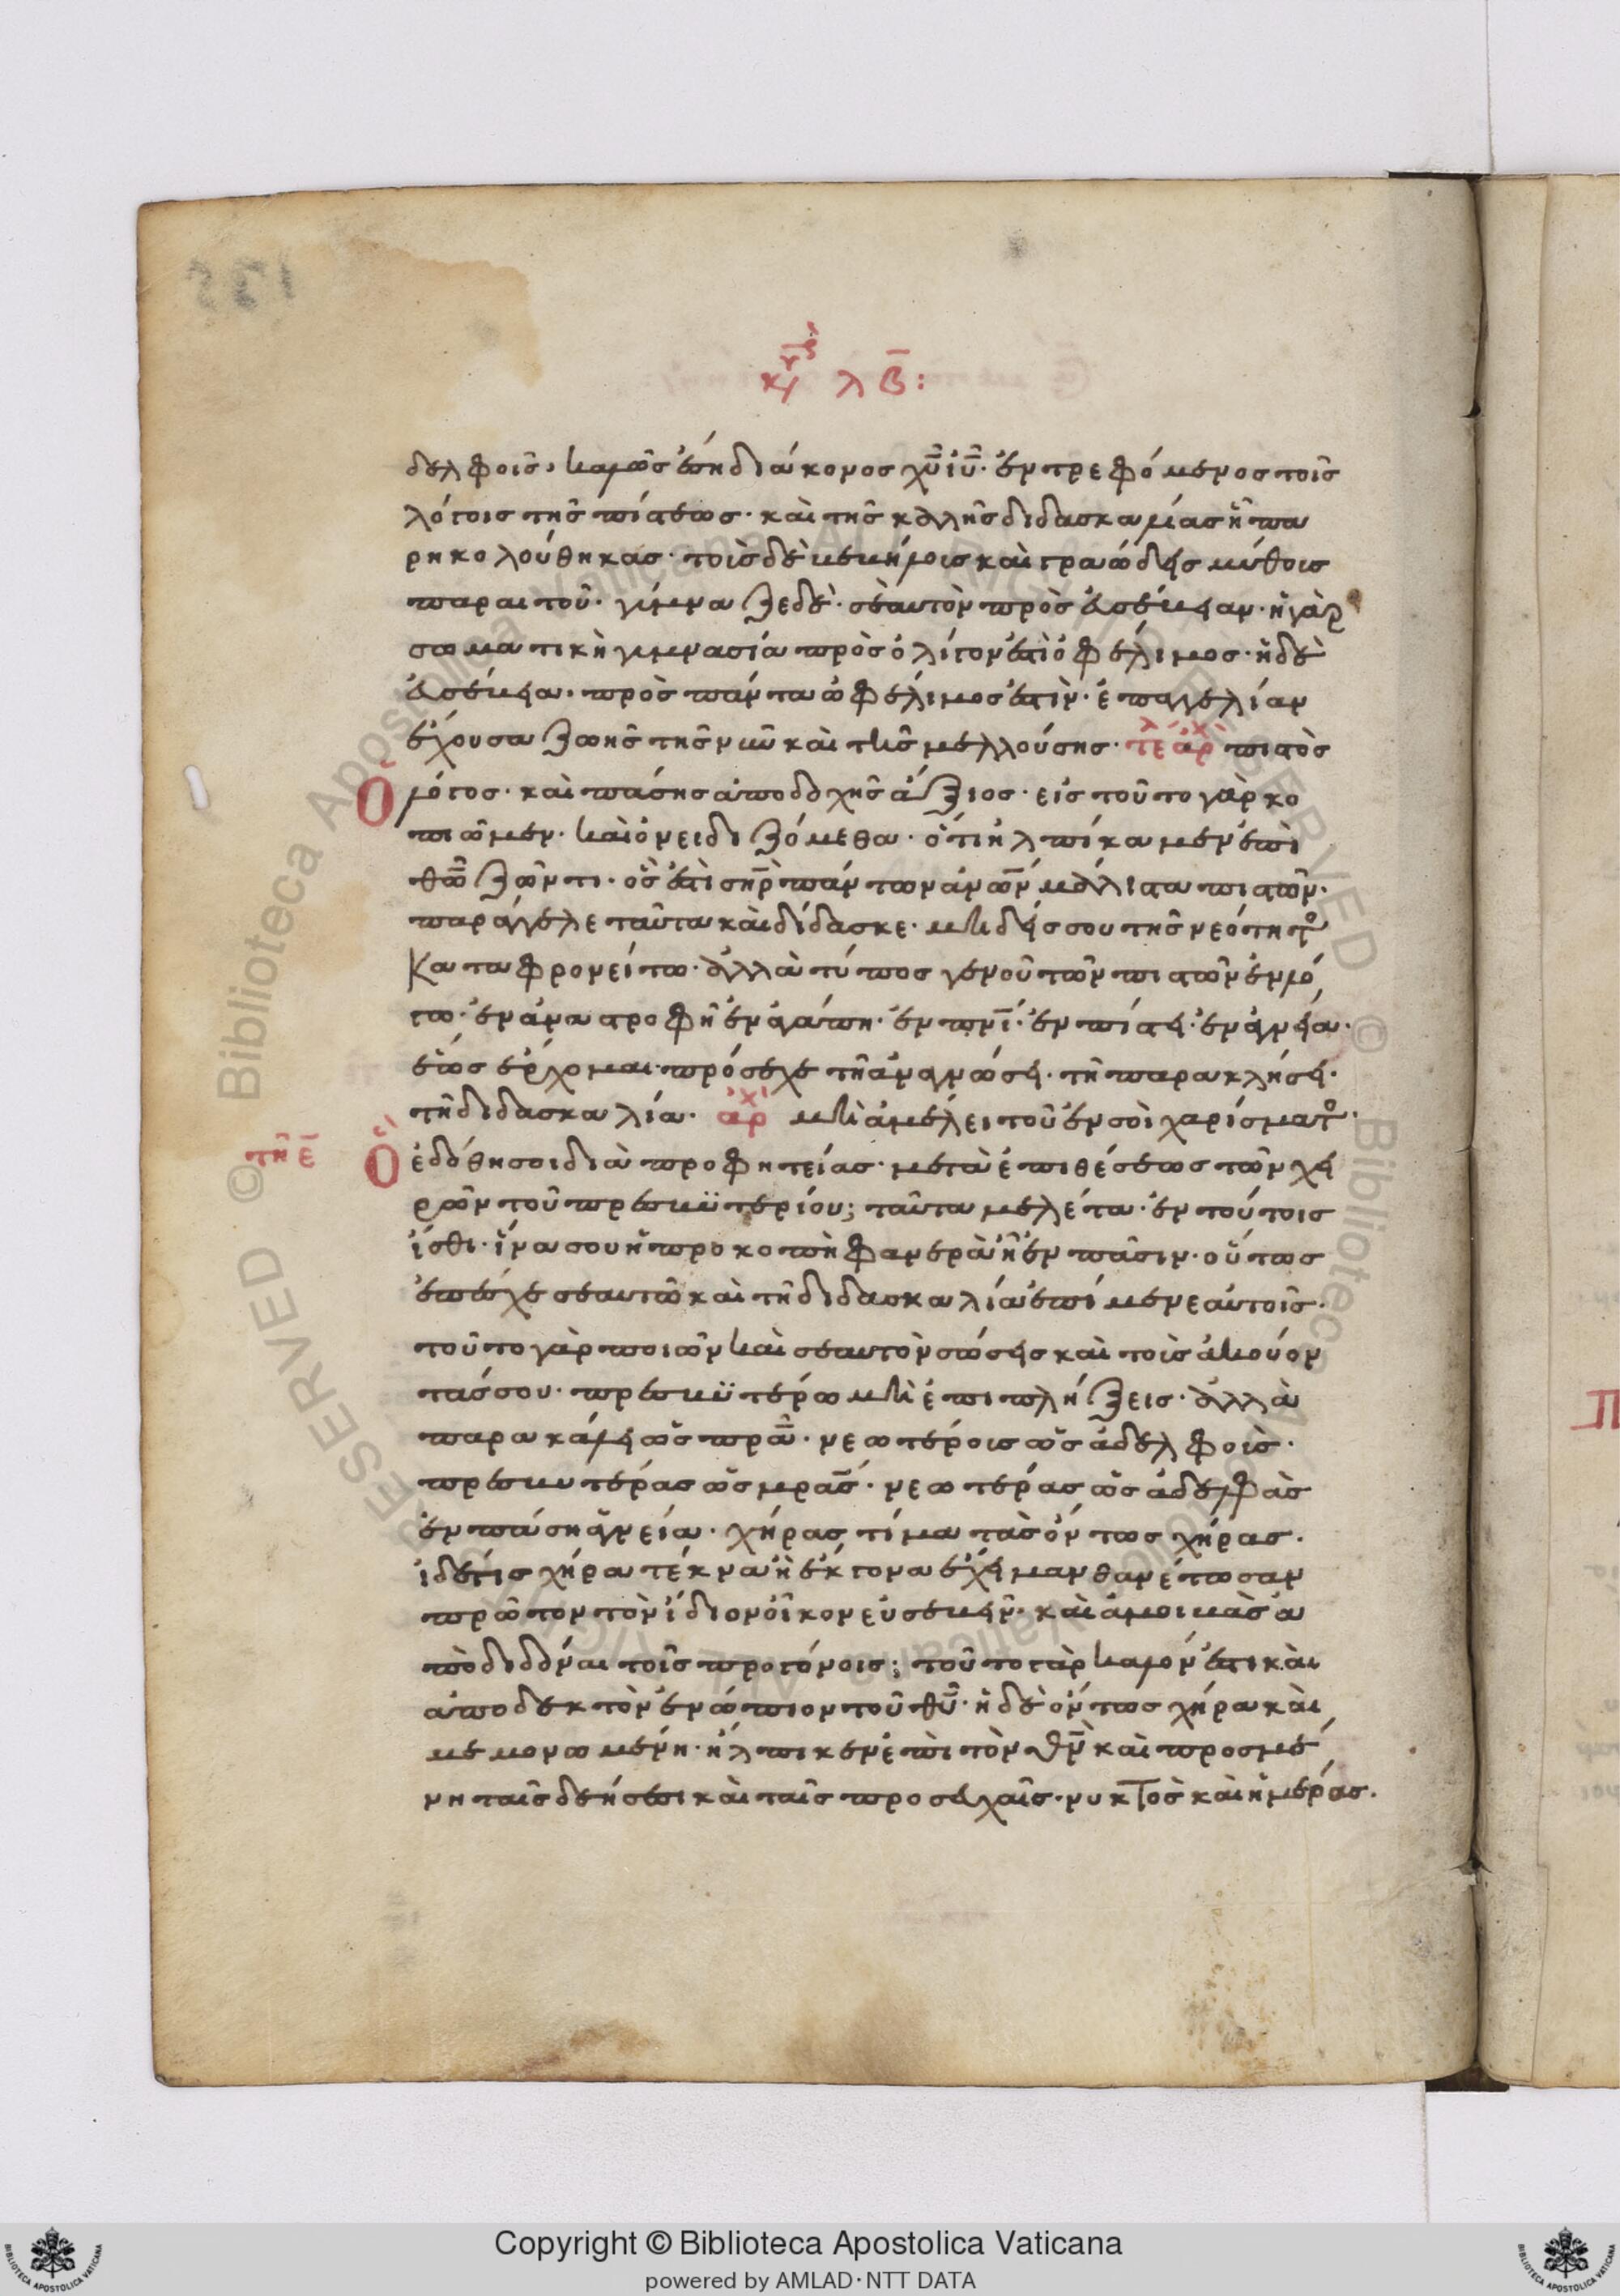 κυ λβ:
δελφοῖς, καλῶς ἔση διάκονος χῦ ἰῦ· ἐντρεφόμενος τοῖς
λόγοις τῆς πίστεως· καὶ τῆς καλῆς διδασκαλίας ἧ πα
ρηκολούθηκας· τοὺς δὲ βεβήλους καὶ γραώδεις μύθους
παραιτοῦ· γύμναζε δὲ· σεαυτὸν πρὸς εὐσέβειαν· ἡ γὰρ
σωματικὴ γυμνασία πρὸς ὀλίγον ἐστὶ ὀφέλιμος· ἡ δὲ
εὐσέβεια· πρὸς πάντα ὠφέλιμος ἐστὶν· ἐπαγγελίαν
ἔχουσα ζωῆς τῆς νῦν καὶ τῆς μελλούσης· τε ἀρχ πιστὸς
Ὁ λόγος· καὶ πάσης ἀποδοχῆς ἄξιος· εἰς τοῦτο γὰρ κο
πιῶμεν· καὶ ὀνειδιζόμεθα· ὅτι ἠλπίκαμεν ἐπὶ
θῶ ζῶντι· ὅς ἐστὶ σηρ πάντων ἀνων μάλιστα πιστῶν·
παράγγελε ταῦτα καὶ δίδασκε· μηδείς σου τῆς νεότητο
καταφρονείτω· ἀλλὰ τύπος γενοῦ τῶν πιστῶν ἐν λό
γω· ἐν ἀναστροφῆ ἐν ἀγάπη· ἐν πνι· ἐν πίστει· ἐν ἁγνεία·
ἕως ἔρχομαι πρόσεχε τῆ ἀναγνώσει· τῆ παρακλήσει·
τῆ διδασκαλία· ἀρχ μὴ ἀμέλει τοῦ ἐν σοὶ χαρίσματο·
τῆ ε Ὁ ἐδόθη σοι διὰ προφητείας· μετὰ ἐπιθέσεως τῶν χει
ρῶν τοῦ πρεσβϋτερίου; ταῦτα μελέτα· ἐν τούτοις
ἴσθι· ἵνα σου ἡ προκοπὴ φανερὰ ἦ ἐν πᾶσιν· οὕτως
ἔπεχε σεαυτῶ καὶ τῆ διδασκαλία ἐπίμενε αὐτοῖς·
τοῦτο γὰρ ποιῶν καὶ σεαυτὸν σώσεις καὶ τοὺς ἀκούον
τάς σου· πρεσβϋτέρω μὴ ἐπιπλήξεις· ἀλλὰ
παρακάλει ὡς πρα· νεωτέροις ὡς ἀδελφοὺς·
πρεσβυτέρας ὡς μρας· νεωτέρας ὡς ἀδελφὰς
ἐν πάση ἁγνεία· χήρας τίμα τὰς ὄντως χήρας·
ἰδέτις χήρα τέκνα ἢ ἔκγονα ἔχει μανθανέτωσαν
πρῶτον τὸν ἴδιον οἶκον εὐσεβεῖν· καὶ ἀμοιβὰς ἀ
ποδιδόναι τοῖς προγόνοις; τοῦτο γάρ καλόν ἐστι καὶ
ἀποδεκτὸν ἐνώπιον τοῦ θῦ· ἡ δὲ ὄντως χήρα καὶ
μεμονωμένη· ἤλπικεν ἐπὶ τὸν θν καὶ προσμέ
νη ταῖς δεήσεσι καὶ ταῖς προσευχαῖς· νυκτὸς καὶ ἡμέρας.
Copyright © Biblioteca Apostolica Vaticana
powered by AMLAD·NTT DATA